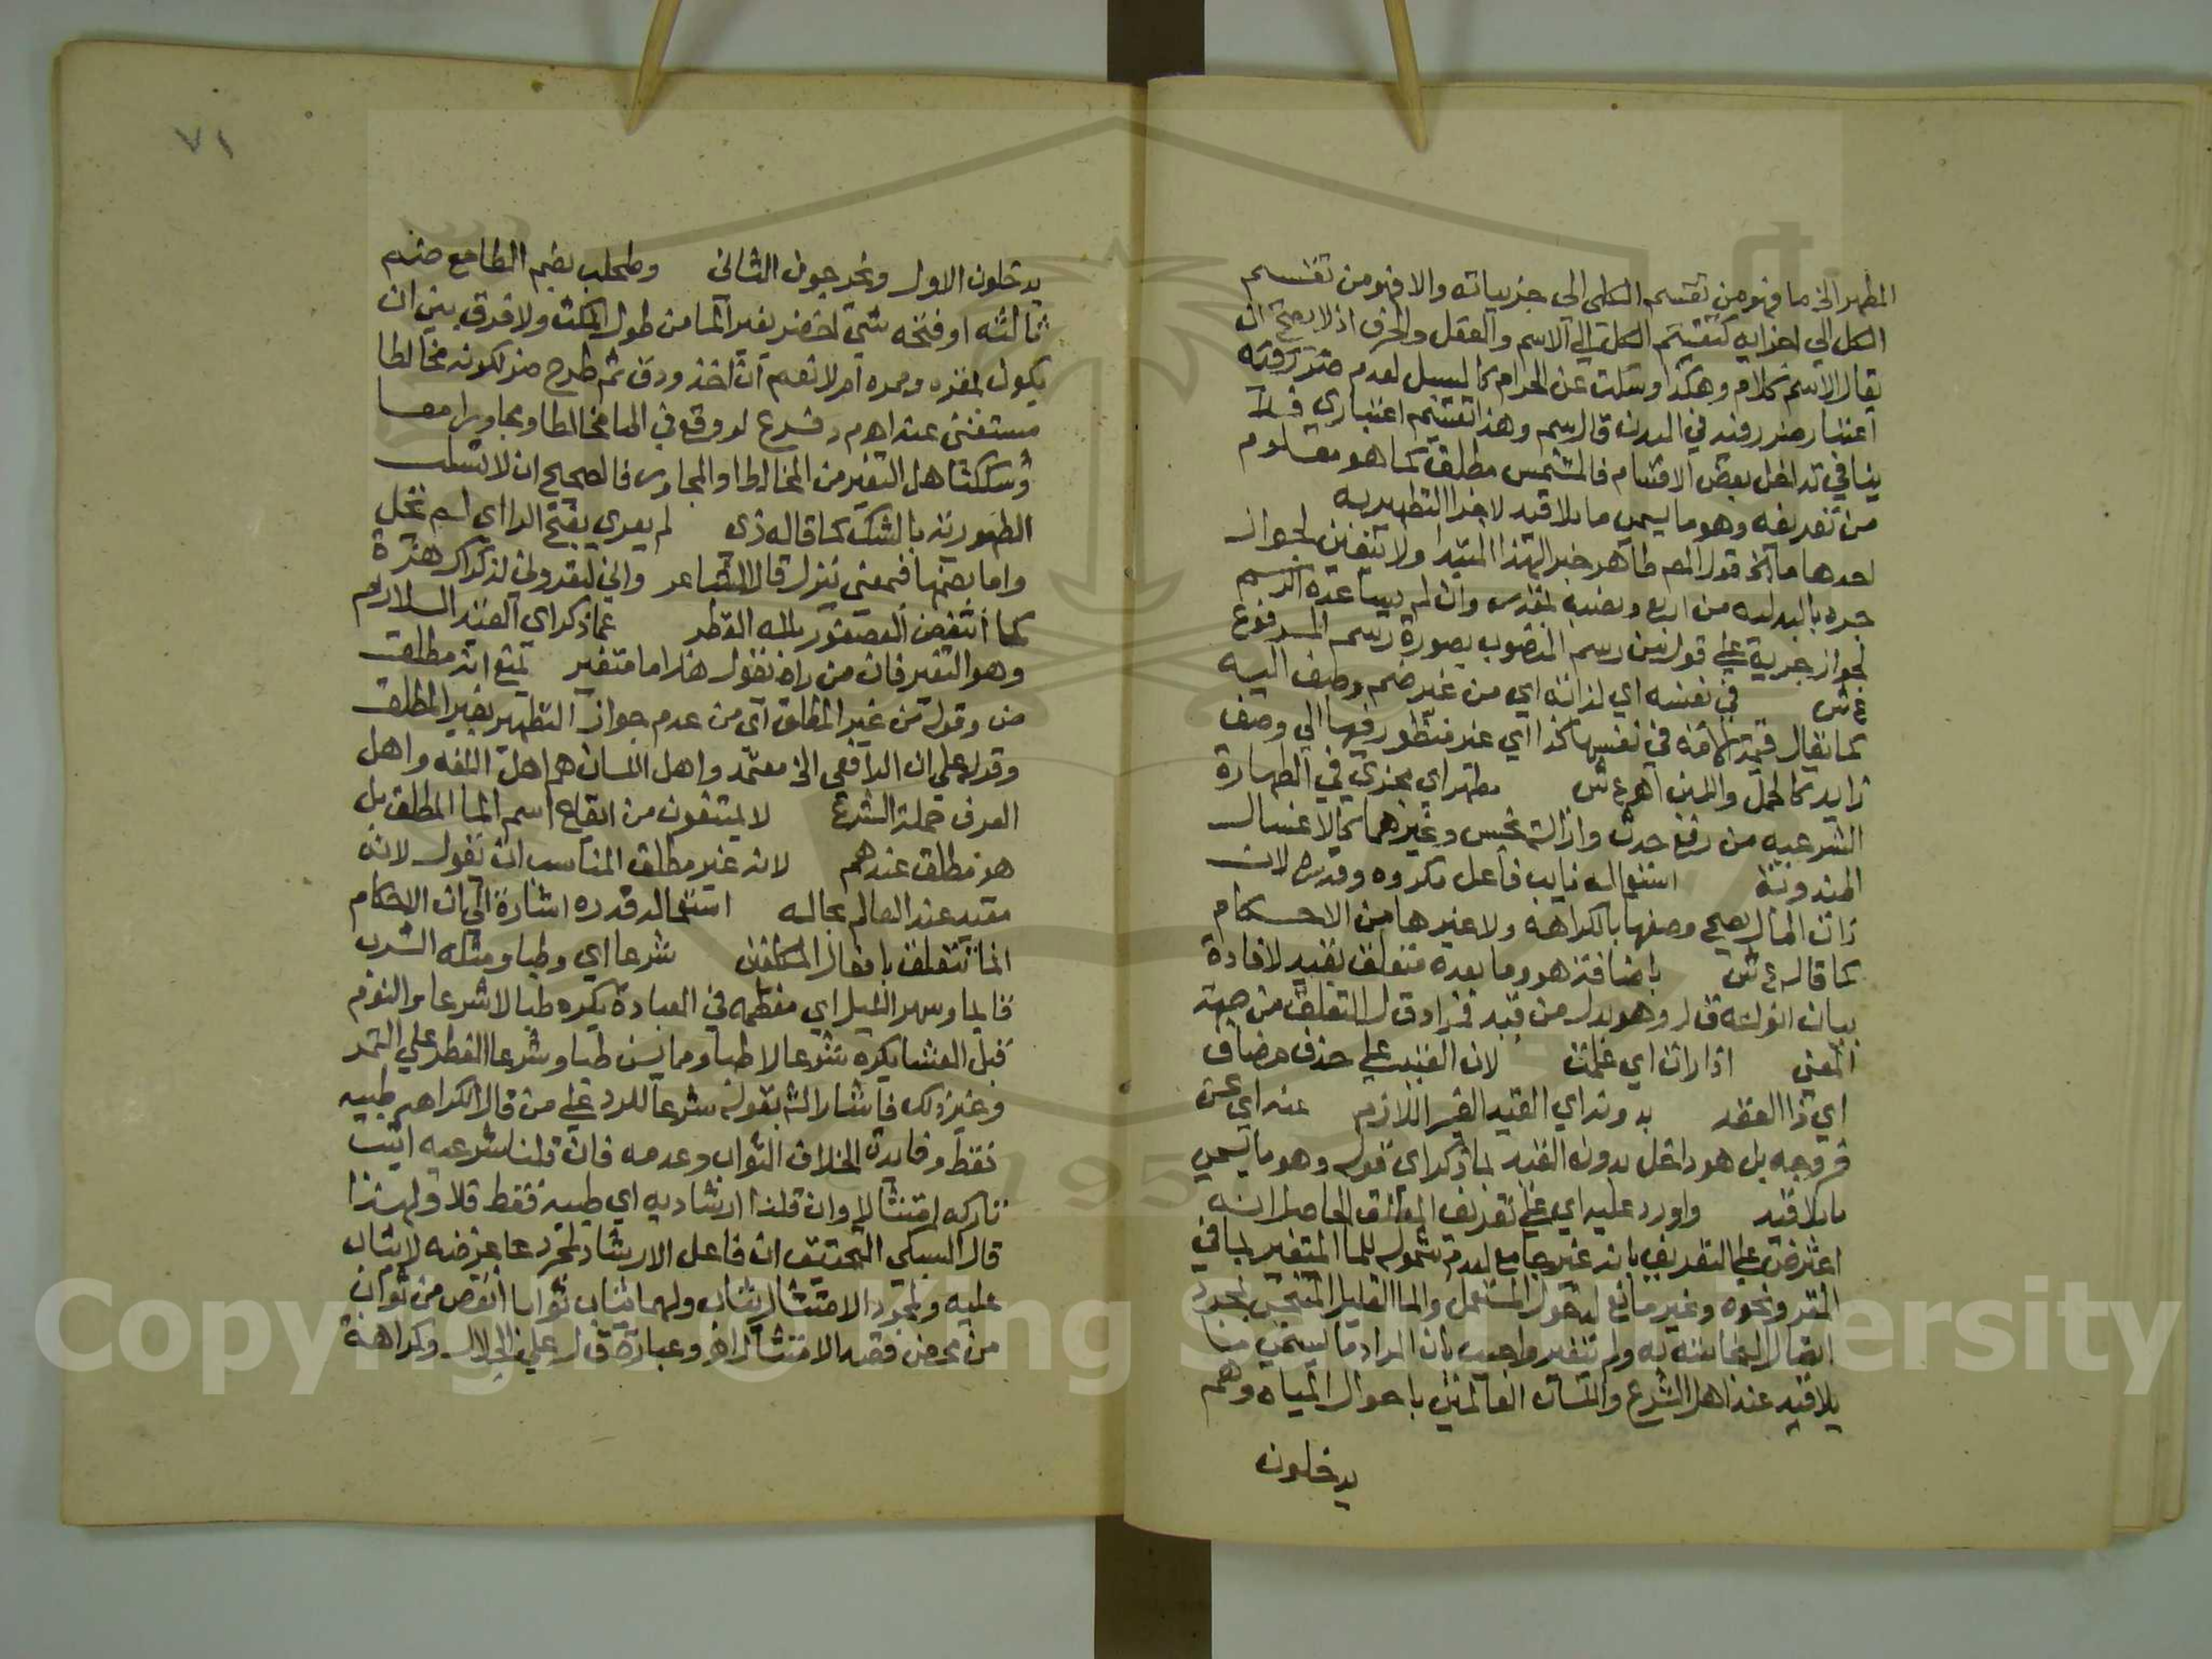 المطهر الخ ما فهو من تقسيم الكلي الي جزيياته والا فهو من تقسيم
الكل الي اجزايه كتقسيم الكلمة الي الاسم والفعل والحرف اذ لا يصح ان
يقال الاسم كلام وهكذا وسكت عن الحرام كالمسبل لعدم
اعتبار ضرر فيه في البدن قال سم وهذا تقسيم اعتباري فلا
ينافي تداخل بعض الاقسام فالمشمس مطلق كما هو معلوم
من تعريفه وهو ما يسمي ما بلا قيد لاجزا التطهير به
احدها ما الخ قول المص طاهر خبر الهذا المبتدا ولا يتعين لجواز
جره بالبدلية من اربع ونصبه وان لم يساعده الرسم
لجواز جريه علي قول من رسم المنصوب بصورة رسم المرفوع
ع ش في نفسه اي لذاته اي من غير ضم وصف اليه
كما يقال قيمة الامة في نفسها كذا اي غير منظور فيها الي وصف
زايد كالحمل والسن اهـ ع ش مطهر اي مجزي في الطهارة
الشرعيه من رفع حدث وازالة نجس وغيرهما كالاغتسال
المندوبة استعماله نايب فاعل مكروه وقدره لان
ذات الما لا يصح وصفها بالكراهه ولا غيرها من الاحكام
كما قاله ع ش باضافته هو وما بعده متعلق بقيد لافادة
بيان انواعه ق ل وهو بدل من قيد فمراد ق ل التعلق من جهة
المعني اذا رات اي علمت لان الغيب علي حذف مضاف
اي ذا العقد بدونه اي القيد الغير اللازم عنه اي عن
خروجه بل هو داخل بدون القيد لما ذكر اي قوله وهو ما يسمي
ما بلا قيد واورد عليه اي علي تعريف المطلق الحاصل انه
اعترض علي التعريف بانه غير جامع لعدم شموله للما المتغير بما في
المقر ونحوه وغير مانع لدخول المستعمل والما القليل المتنجس بمجرد
اتصال النجاسة به ولم يتغير واجيب بان المراد ما يسمي ما
بلا قيد عند اهل الشرع واللسان العالمين باحوال المياه وهم
يدخلون
٧١
يدخلون الاول ويخرجون الثاني وطحلب بضم الطا مع ضم
ثالثه او فتحه شي اخضر يعلو الما من طول المكث ولا فرق بين ان
يكون بمقره وممره ام لا نعم ان اخذ ودق ثم طرح ضر لكونه مخالطا
مستغني عنه اهـ م ر فرع لو وقع في الما مخالطا ومجاورا معا
وشككنا هل التغير من المخالط او المجاور فالصحيح انه لا تسلب
الطهورية بالشك كما قاله زي لم يعري بفتح الرا اي لم تخل
واما بضمها فمعني ينزل قال الشاعر واني لتعروني لذكراك هزة
كما انتفض العصفور بلله القطر عما ذكر اي القيد اللازم
وهو التغير فان من راه يقول هذا ما متغير يمنع انه مطلق
ض وقوله من غير المطلق اي من عدم جواز التطهير بغير المطلق
وقوله علي ان الرافعي الخ معتمد واهل اللسان هم اهل اللغه واهل
العرف حملة الشرع لا يمتنعون من ايقاع اسم الما المطلق بل
هو مطلق عندهم لانه غير مطلق المناسب ان يقول لانه
مقيد عند العالم بحاله استعماله قدره اشارة الي ان الاحكام
انما تتعلق بافعال المكلفين شرعا اي وطبا ومثله الشرب
قايما وسهر الليل اي معظمه في العبادة يكره طبا لا شرعا والنوم
قبل العشا يكره شرعا لا طبا ومما يسن طبا وشرعا الفطر علي التمر
وغير ذلك فاشار الش بقوله شرعا للرد علي من قال الكراهه طبيه
فقط وفايدة الخلاف الثواب وعدمه فان قلنا شرعيه اثيب
تاركه امتثالا وان قلنا ارشاديه اي طبية فقط فلا ولهذا
قال السبكي التحقيق ان فاعل الارشاد لمجرد غرضه لا يثاب
عليه ولمجرد الامتثال يثاب ولهما يثاب ثوابا انقص من ثواب
من محض قصد الامتثال اهـ وعبارة ق ل علي الجلال وكراهة